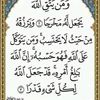 وَمَن يَتَّقِ ٱللَّهَ
يَجۡعَل لَّهُۥ مَخۡرَجٗا ۝ وَيَرۡزُقۡهُ
مِنۡ حَيۡثُ لَا يَحۡتَسِبُۚ وَمَن يَتَوَكَّلۡ
عَلَى ٱللَّهِ فَهُوَ حَسۡبُهُۥٓۚ إِنَّ ٱللَّهَ
بَٰلِغُ أَمۡرِهِۦۚ قَدۡ جَعَلَ ٱللَّهُ
لِكُلِّ شَيۡءٖ قَدۡرٗا ۝